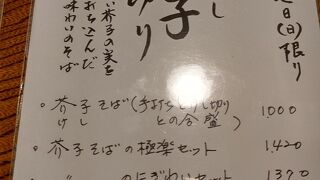 日(日)限り
し
子
切り
い芥子の実を
打ち込んだ
味わいのそば
・芥子そば(手打ちけし切り
けし
との合盛)
1000
・芥子そばの極楽セット
1,420
のにぎわいセット
1,370